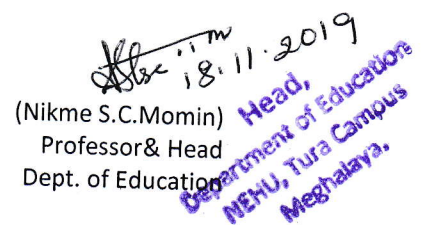 18.11.2019
(Nikme S.C.Momin)
Professor& Head
Dept. of Education
Head,
Department of Education
NEHU, Tura Campus
Meghalaya,